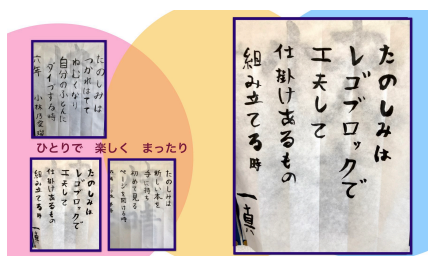 たのしみは
つかれはてて
ねむくなり
自分のふとんに
ダイブする時
六年
ひとりで 楽しく まったり
たのしみは
レゴブロックで
工夫して
仕掛けあるもの
組み立てる時
一真
たのしみは
新しい本を
手に持ち
初めて見る
ページを開ける時
たのしみは
レゴブロックで
工夫して
仕掛けあるもの
組み立てる時
一真